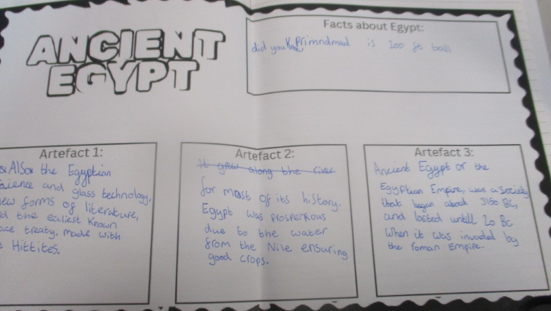 ANCIENT
EGYPT
Facts about Egypt:
did you is 200 ft ball
Artefact 1:
Also the Egyptian
and glass technology,
forms of literature,
the earliest known
treaty, made with
Hittites.
Artefact 2:
It grew along the river
for most of its history.
Egypt was prosperous
due to the water
from the Nile ensuring
good crops.
Artefact 3:
Ancient Egypt or the
Egyptian Empire, was a
that began about 3150 BC,
and lasted untill 20 BC
when it was invaded by
the roman Empire.